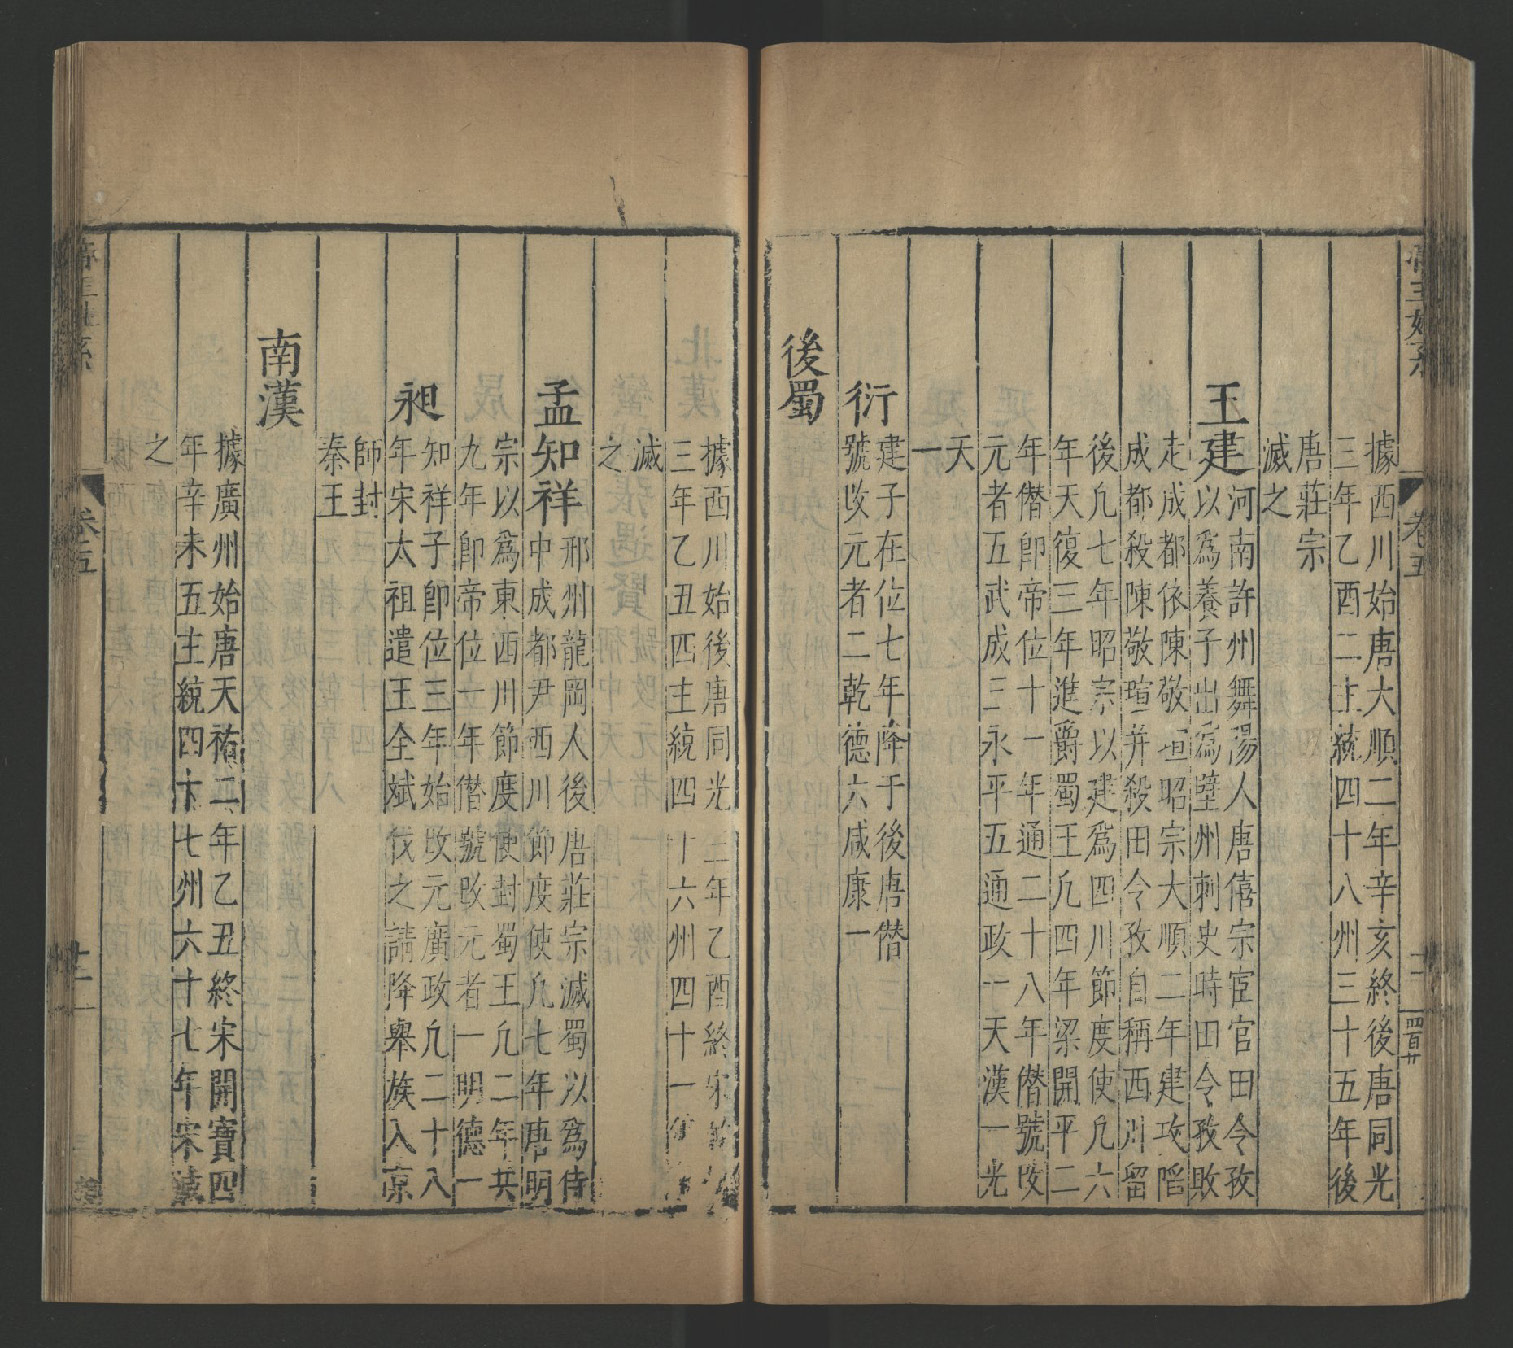 帝王世系
卷五
四百廿
據西川始唐大順二年辛亥終後唐同光
三年乙酉二主統四十八州三十五年後
唐莊宗
滅之
王建
河南許州舞陽人唐僖宗宦官田令孜
以為養子出為壁州刺史時田令孜敗
走成都依陳敬瑄昭宗大順二年建攻陷
成都殺陳敬瑄并殺田令孜自稱西川留
後凢七年昭宗以建為四川節度使凢六
年天復三年進爵蜀王凢四年梁開平二
年僣即帝位十一年通二十八年僣號改
元者五武成三永平五通政一天漢一光
天
一
衍
建子在位七年降于後唐僣
號改元者二乾德六咸康一
後蜀
據西川始後唐同光三年乙酉終宋
三年乙丑四主統四十六州四十一年
滅
之
孟知祥
邢州龍岡人後唐莊宗滅蜀以為侍
中成都尹西川節度使凢七年唐明
宗以為東西川節度使封蜀王凢二年共
九年即帝位一年僣號改元者一明德一
昶
知祥子即位三年始改元廣政凢二十八
年宋太祖遣王全斌伐之請降舉族入京
師封
秦王
南漢
據廣州始唐天祐二年乙丑終宋開寶四
年辛未五主統四十七州六十七年宋滅
之
帝王世系
卷五